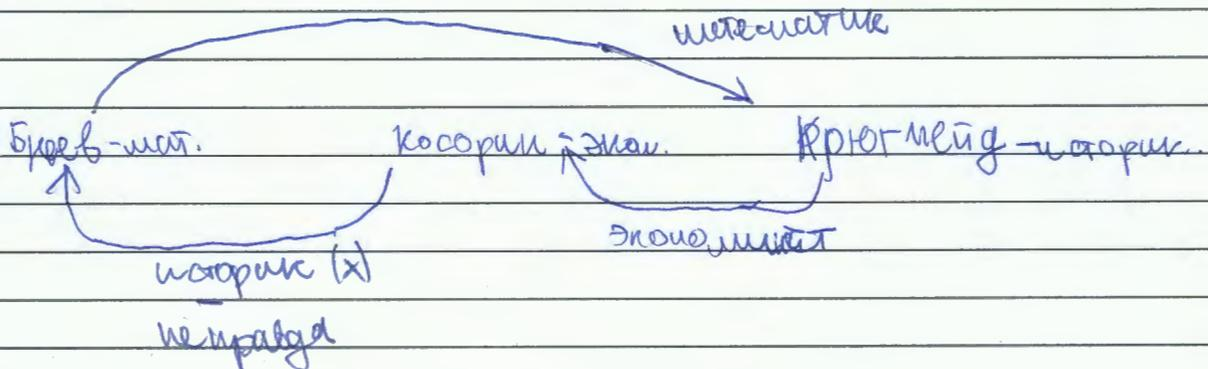 математик
Бреев-мат. Косорин-экон. Крюгмейд-историк.
экономист
историк (х)
неправда